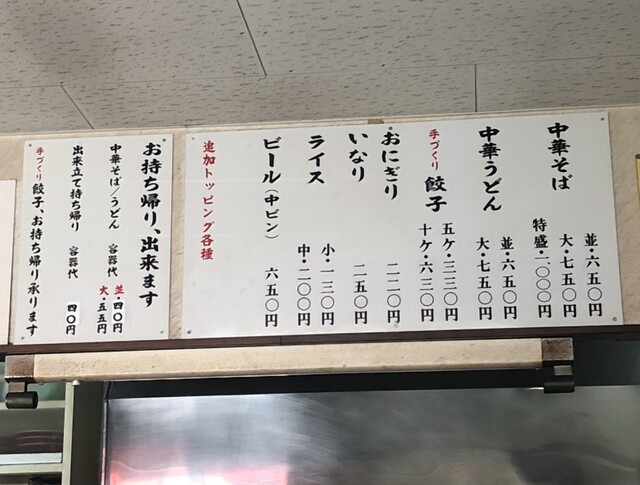 中華そば
並・六五〇円
大・七五〇円
特盛・一〇〇〇円
中華うどん
並・六五〇円
大・七五〇円
手づくり 餃子
五ケ・三三〇円
十ケ・六三〇円
おにぎり 二二〇円
いなり 二五〇円
ライス
小・一三〇円
中・二〇〇円
ビール(中ビン) 六五〇円
追加トッピング各種
お持ち帰り、出来ます
中華そば/うどん 容器代
並・四〇円
大・五五円
出来立て持ち帰り 容器代 四〇円
手づくり餃子、お持ち帰り承ります